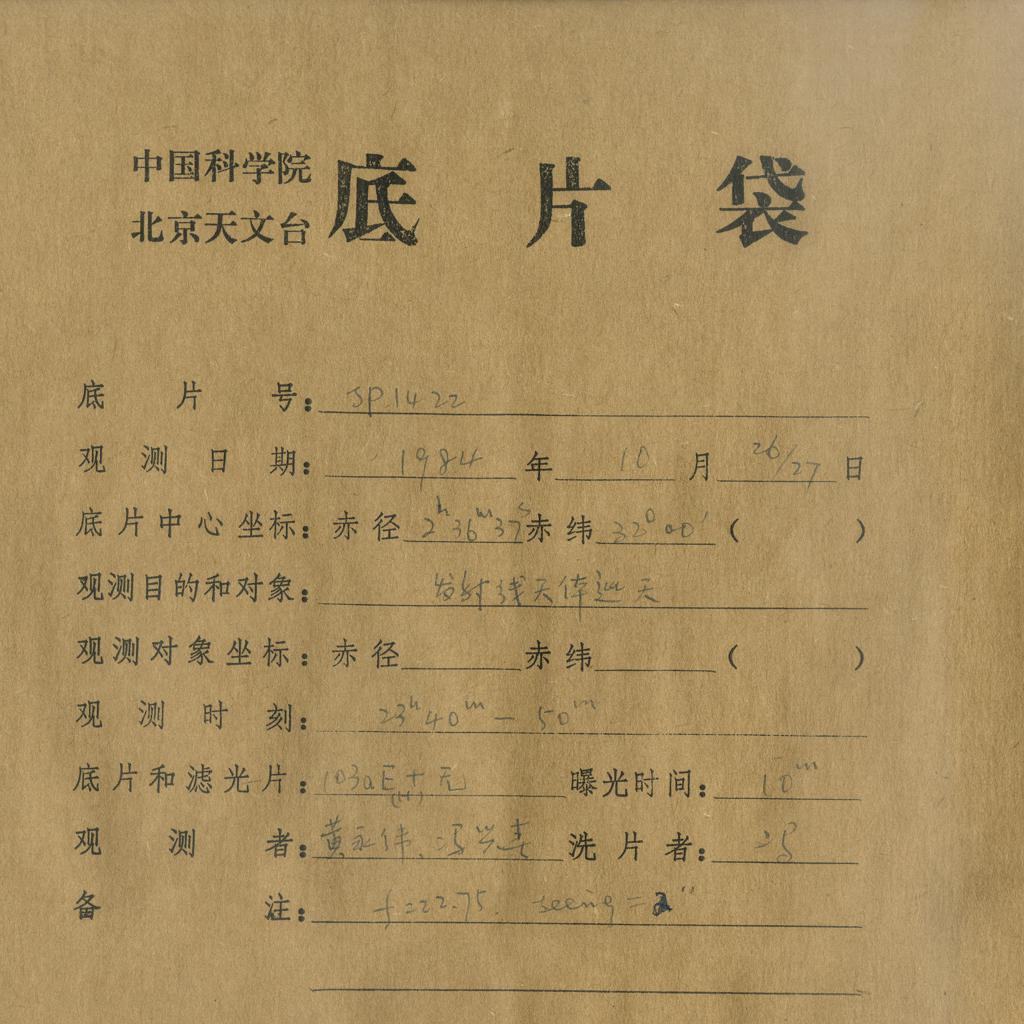 中国科学院
北京天文台
底片袋
底片号: SP1422
观测日期: 1984年10月26/27日
底片中心坐标: 赤径2h36m37s赤纬32°00′( )
观测目的和对象: 发射线天体巡天
观测对象坐标: 赤径 赤纬 ( )
观测时刻: 23h40m—50m
底片和滤光片: 103aE+无 曝光时间: 10m
观测者: 黄永伟、冯兴春 洗片者: 冯
备注: f=22.75. seeing=2″